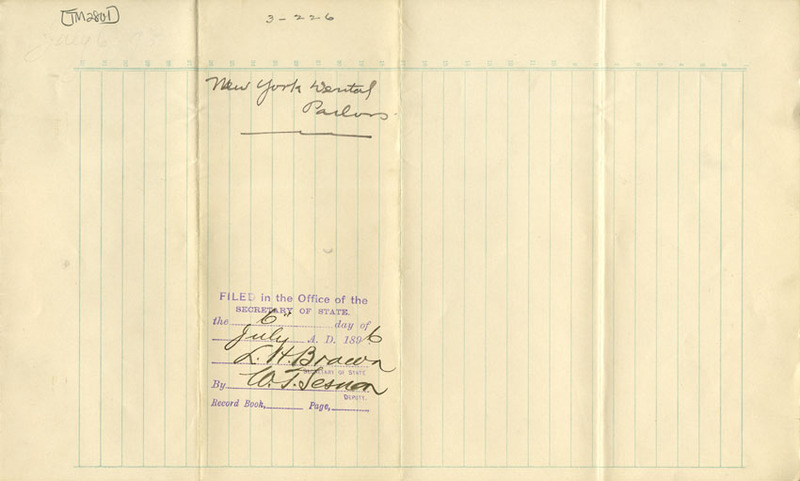 [TM2801]
3-226
New York Dental
Parlors
FILED in the Office of the
SECRETARY OF STATE.
the 6" day of
July A. D. 1896
L. H. Brown
SECRETARY OF STATE
By W. T. Sesnon
DEPUTY.
Record Book, Page,